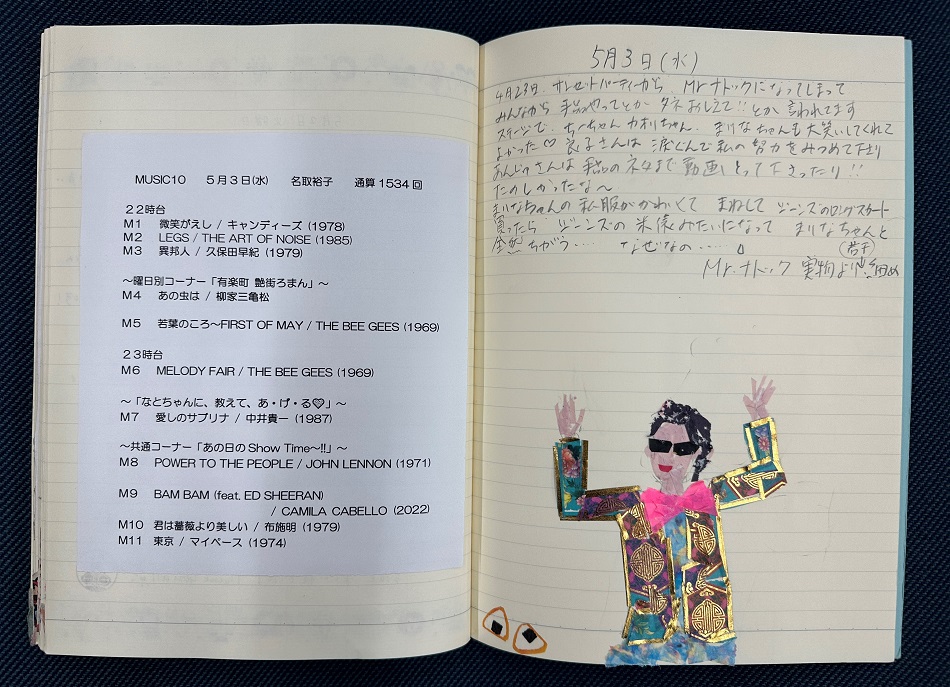 MUSIC10　５月３日(水)　名取裕子　通算 1534 回
２２時台
M1　微笑がえし / キャンディーズ (1978)
M2　LEGS / THE ART OF NOISE (1985)
M3　異邦人 / 久保田早紀 (1979)
～曜日別コーナー「有楽町 艶街ろまん」～
M4　あの虫は / 柳家三亀松
M5　若葉のころ～FIRST OF MAY / THE BEE GEES (1969)
２３時台
M6　MELODY FAIR / THE BEE GEES (1969)
～「なとちゃんに、教えて、あ・げ・る♡」～
M7　愛しのサブリナ / 中井貴一 (1987)
～共通コーナー「あの日の Show Time～!!」～
M8　POWER TO THE PEOPLE / JOHN LENNON (1971)
M9　BAM BAM (feat. ED SHEERAN)
/ CAMILA CABELLO (2022)
M10　君は薔薇より美しい / 布施明 (1979)
M11　東京 / マイペース (1974)
5月3日(水)
4月23日、パーティーから Mr.ナトックになってしまって
みんなから 手品やってとか タネおしえて!!とか 言われてます
ステージで、ちーちゃん カオリちゃん、まりなちゃんも大笑いしてくれて
よかった♡ 良子さんは 涙ぐんで私の努力をみつめて下さり
あんじゅさんは 手品のネタまで 動画とって下さったり!!
たのしかったな～
まりなちゃんの私服がかわいくて まねして ジーンズのロングスカート
買ったら ジーンズの 米俵みたいになって まりなちゃんと
全然 ちがう… なぜなの……
(若干)
Mr.ナトック 実物より 細め